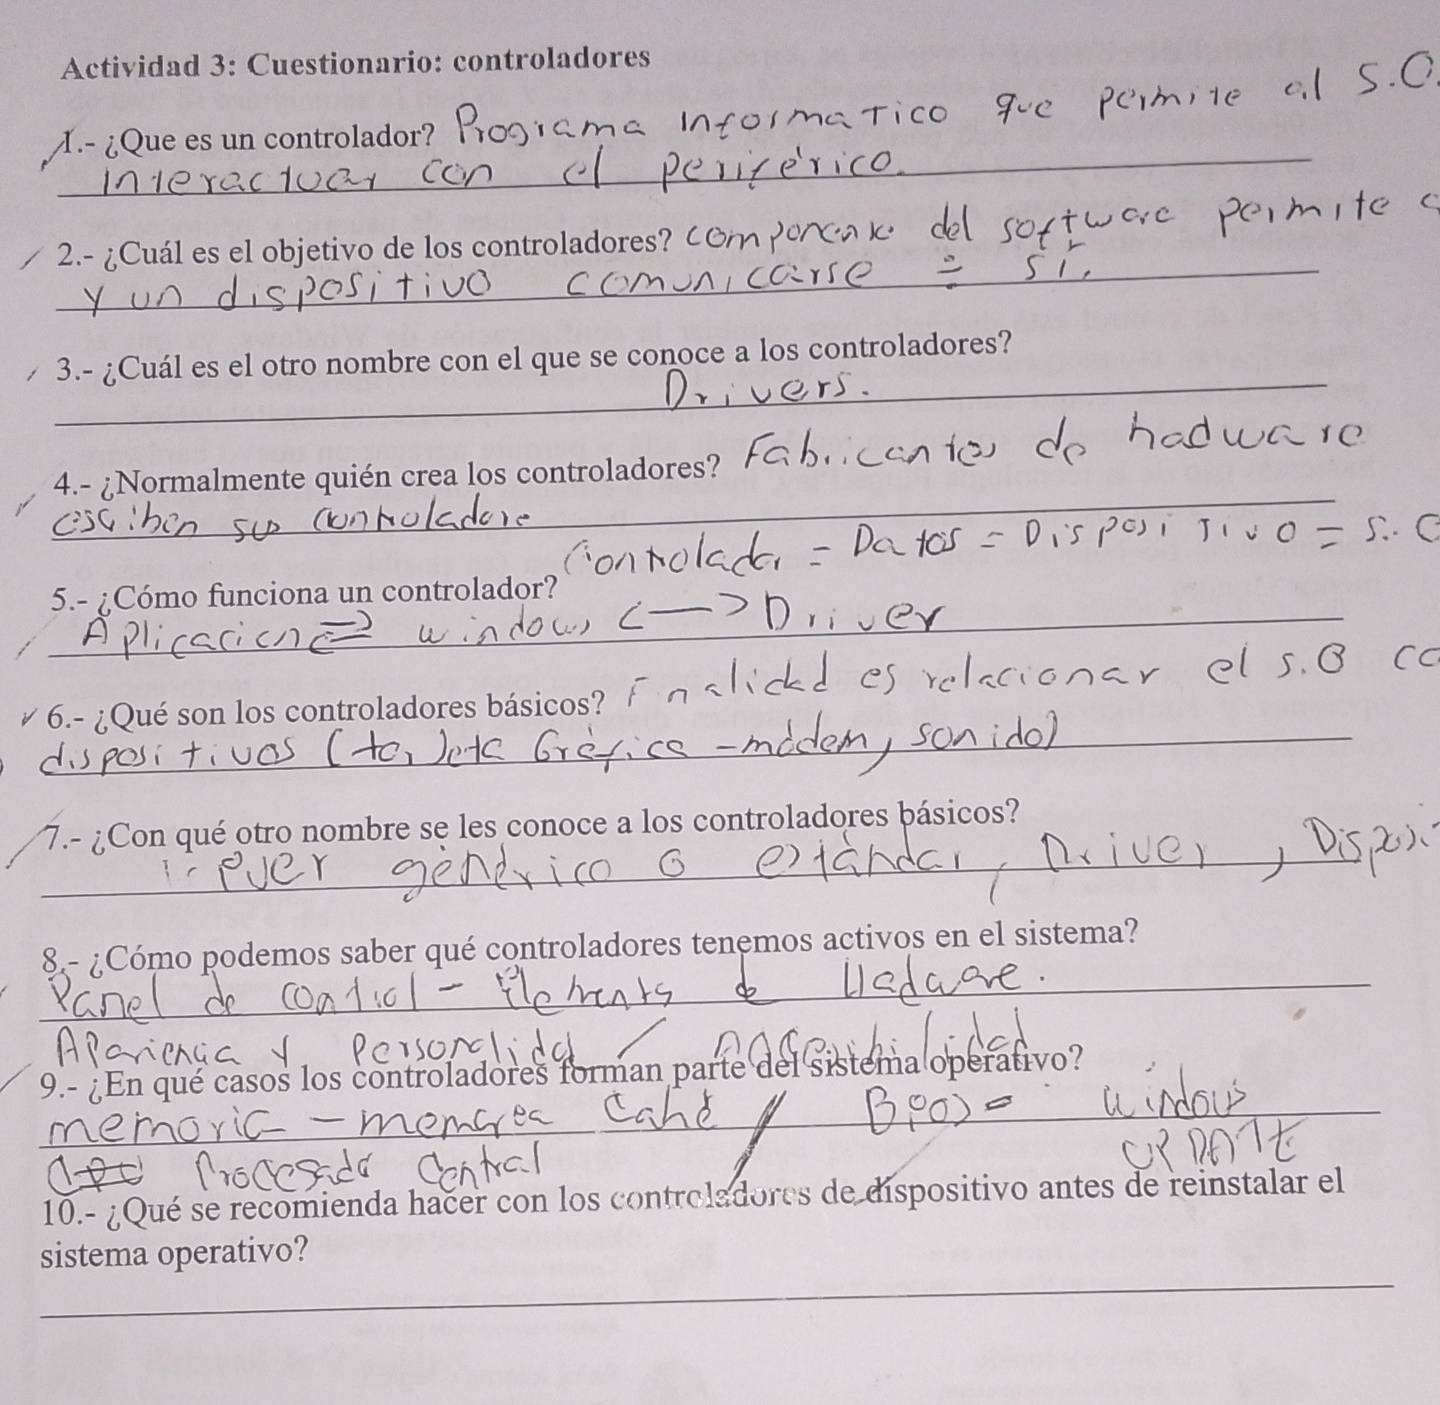 Actividad 3: Cuestionario: controladores
1.- ¿Que es un controlador? Programa Informatico que permite al S.O.
interactuar con el periférico.
2.- ¿Cuál es el objetivo de los controladores? componente del software permite
y un dispositivo comunicarse = sí.
3.- ¿Cuál es el otro nombre con el que se conoce a los controladores?
Drivers.
4.- ¿Normalmente quién crea los controladores? Fabricantes de hadware
escriben sus controladore
5.- ¿Cómo funciona un controlador? Controlador = Datos = Dispositivo = S.O
Aplicacion ⇄ windows <—> Driver
6.- ¿Qué son los controladores básicos? Finalidad es relacionar el S.O co
dispositivos (tarjeta Gráfica - módem, sonido)
7.- ¿Con qué otro nombre se les conoce a los controladores básicos?
genérico o estándar, Driver, Disposi
8.- ¿Cómo podemos saber qué controladores tenemos activos en el sistema?
Panel de control - Elements de Hadware.
Apariencia y Personalidad / accesibilidad
9.- ¿En qué casos los controladores forman parte del sistema operativo?
memoria - memoria Cahé / Bios = windows
Procesado Central UPDATE
10.- ¿Qué se recomienda hacer con los controladores de dispositivo antes de reinstalar el
sistema operativo?